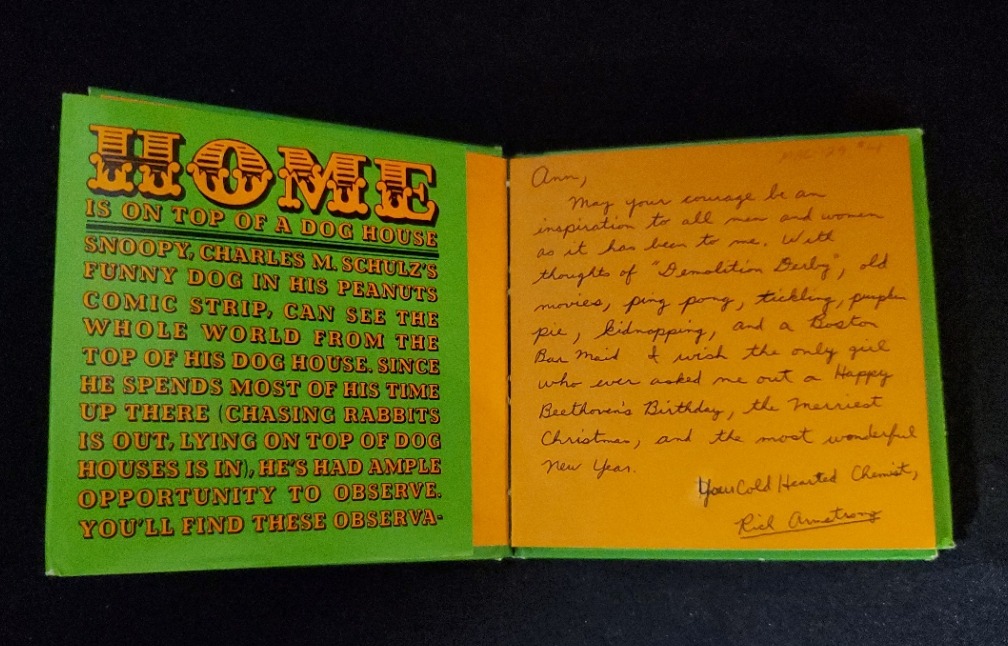 HOME
IS ON TOP OF A DOG HOUSE
SNOOPY, CHARLES M. SCHULZ'S
FUNNY DOG IN HIS PEANUTS
COMIC STRIP, CAN SEE THE
WHOLE WORLD FROM THE
TOP OF HIS DOG HOUSE. SINCE
HE SPENDS MOST OF HIS TIME
UP THERE (CHASING RABBITS
IS OUT, LYING ON TOP OF DOG
HOUSES IS IN), HE'S HAD AMPLE
OPPORTUNITY TO OBSERVE.
YOU'LL FIND THESE OBSERVA-
Ann,
May your courage be an
inspiration to all men and women
as it has been to me. With
thoughts of "Demolition Derby", old
movies, ping pong, tickling, pumpkin
pie, kidnapping, and a Boston
Bar Maid I wish the only girl
who ever asked me out a Happy
Beethoven's Birthday, the Merriest
Christmas, and the most wonderful
New Year.
Your Cold Hearted Chemist,
Rich Armstrong